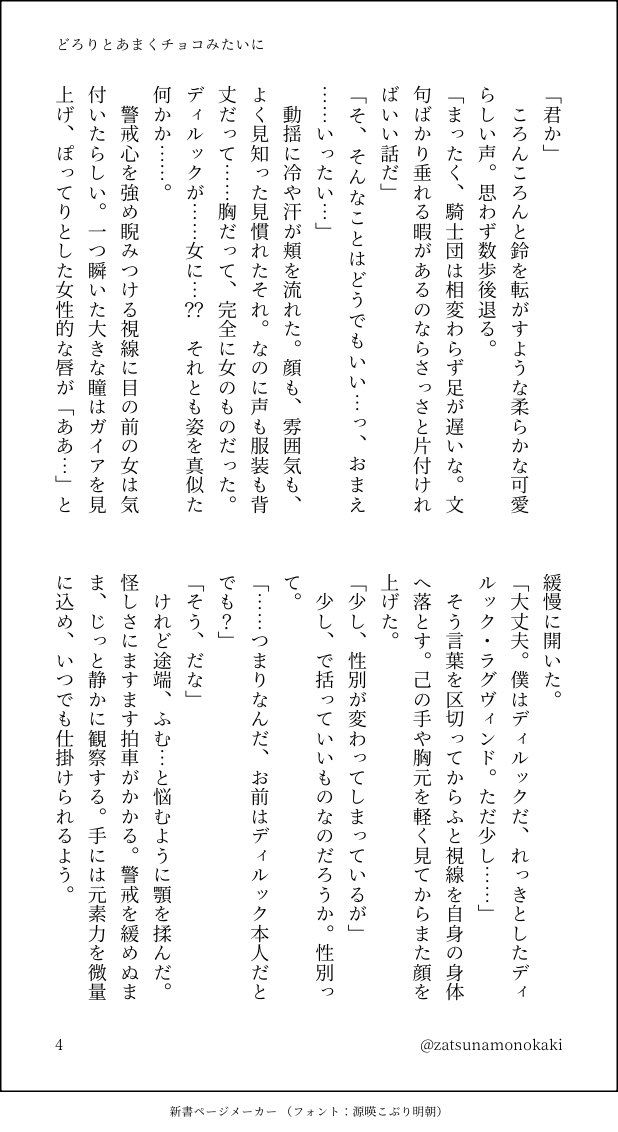 どろりとあまくチョコみたいに
「君か」
　ころんころんと鈴を転がすような柔らかな可愛
らしい声。思わず数歩後退る。
「まったく、騎士団は相変わらず足が遅いな。文
句ばかり垂れる暇があるのならさっさと片付けれ
ばいい話だ」
「そ、そんなことはどうでもいい…っ、おまえ
……いったい…」
　動揺に冷や汗が頬を流れた。顔も、雰囲気も、
よく見知った見慣れたそれ。なのに声も服装も背
丈だって……胸だって、完全に女のものだった。
ディルックが……女に…??　それとも姿を真似た
何かか……。
　警戒心を強め睨みつける視線に目の前の女は気
付いたらしい。一つ瞬いた大きな瞳はガイアを見
上げ、ぽってりとした女性的な唇が「ああ…」と
緩慢に開いた。
「大丈夫。僕はディルックだ、れっきとしたディ
ルック・ラグヴィンド。ただ少し……」
　そう言葉を区切ってからふと視線を自身の身体
へ落とす。己の手や胸元を軽く見てからまた顔を
上げた。
「少し、性別が変わってしまっているが」
　少し、で括っていいものなのだろうか。性別っ
て。
「……つまりなんだ、お前はディルック本人だと
でも？」
「そう、だな」
　けれど途端、ふむ…と悩むように顎を揉んだ。
怪しさにますます拍車がかかる。警戒を緩めぬま
ま、じっと静かに観察する。手には元素力を微量
に込め、いつでも仕掛けられるよう。
4
@zatsunamonokaki
新書ページメーカー（フォント：源暎こぶり明朝）